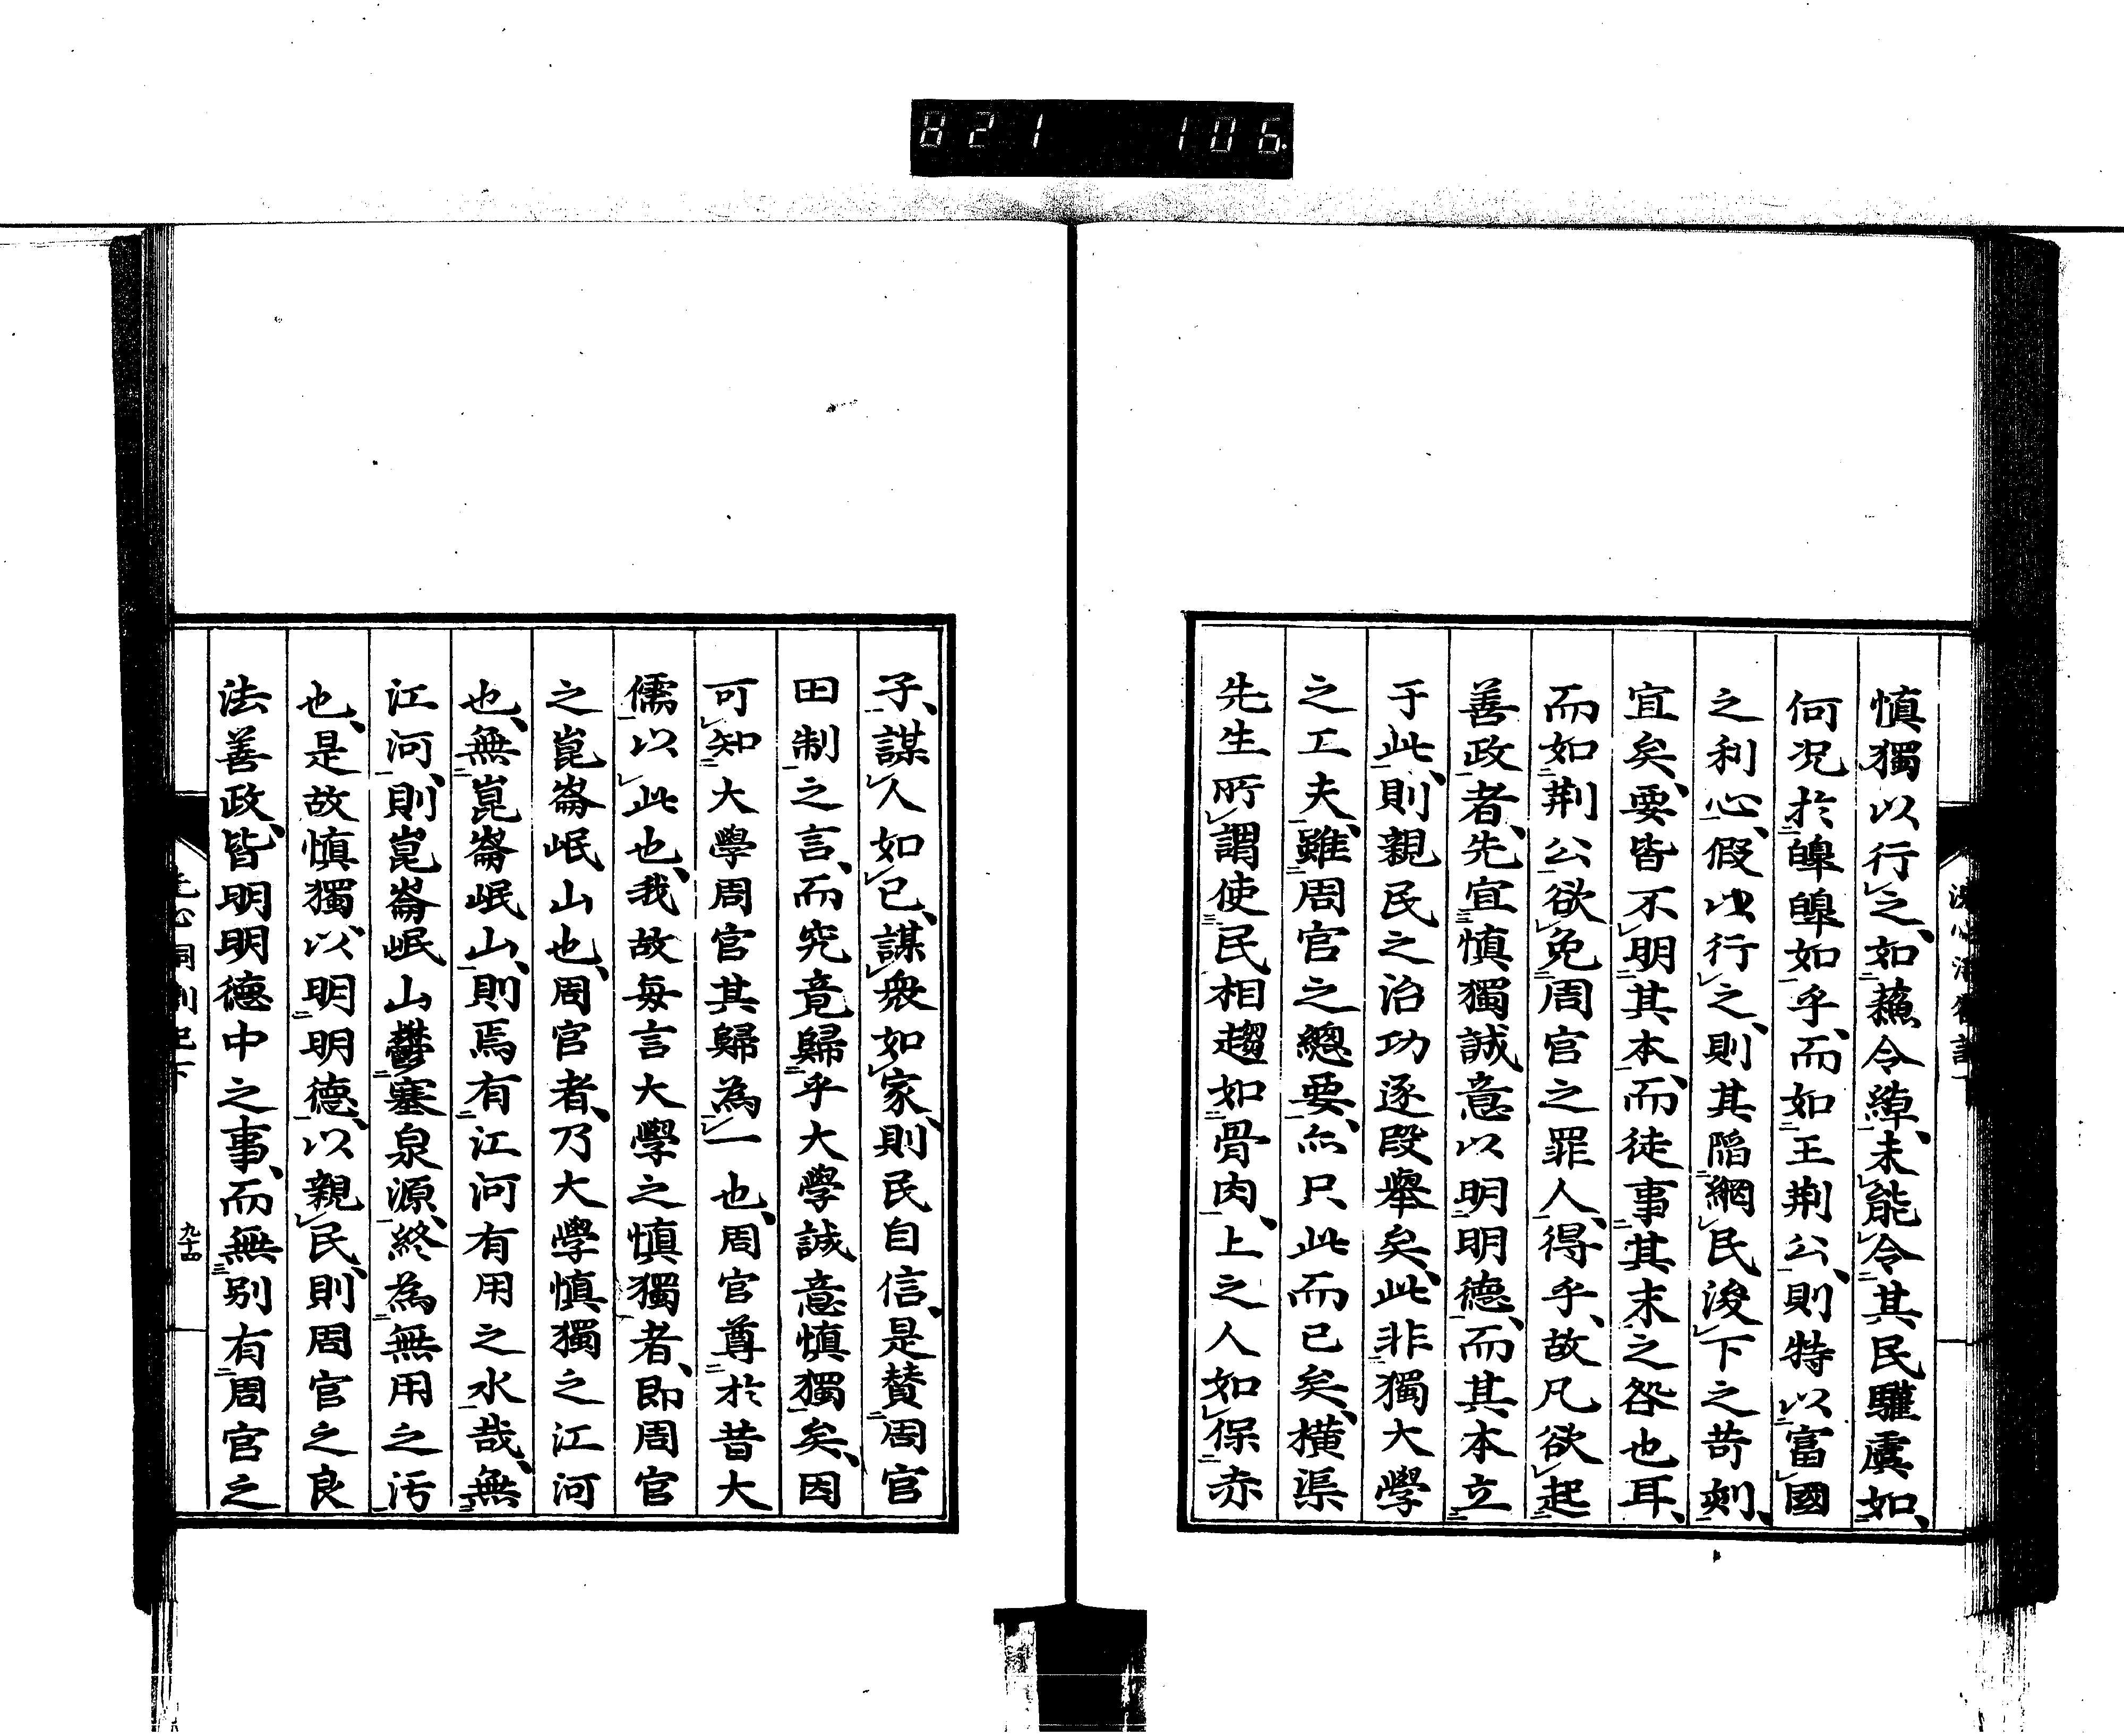 821 106
慎獨以行之、如蘓令綽、未能令其民驩虞如、
何况於皡皡如乎、而如王荆公、則特以富國
之利心、假以行之、則其陷網民浚下之苛刻、
宜矣、要皆不明其本、而徒事其末之咎也耳、
而如荆公欲免周官之罪人、得乎、故凡欲起
善政者、先宜慎獨誠意以明明德、而其本立
于此、則親民之治功逐段舉矣、此非獨大學
之工夫、雖周官之總要、亦只此而已矣、橫渠
先生所謂使民相趨如骨肉、上之人如保赤
子、謀人如己、謀衆如家、則民自信、是賛周官
田制之言、而究竟歸乎大學誠意慎獨矣、因
可知大學周官其歸為一也、周官尊於昔大
儒以此也、我故毎言大學之慎獨者、即周官
之崑崙岷山也、周官者、乃大學慎獨之江河
也、無崑崙岷山、則焉有江河有用之水哉、無
江河、則崑崙岷山鬱塞泉源、終為無用之汚
也、是故慎獨以明明德、以親民、則周官之良
法善政、皆明明德中之事、而無别有周官之
九十四